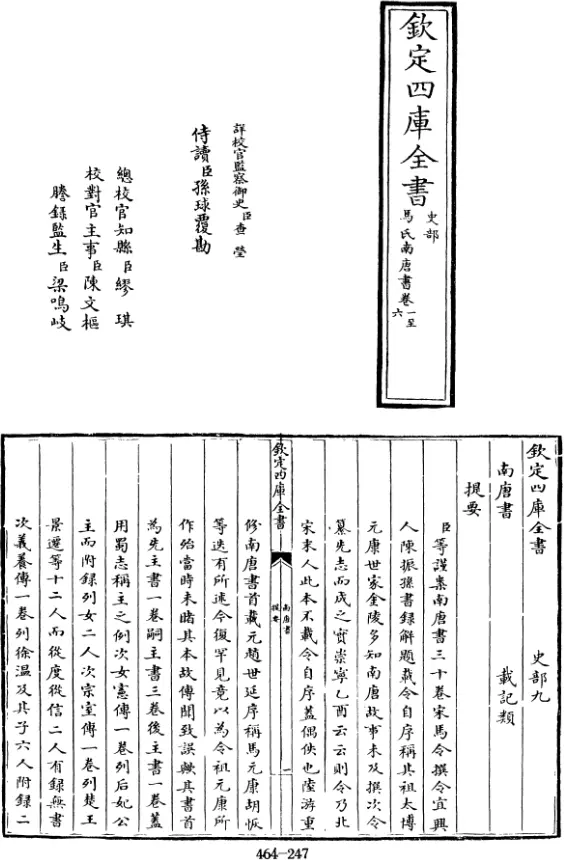 欽定四庫全書
史部
馬氏南唐書卷一至六
詳校官監察御史臣查瑩
侍讀臣孫球覆勘
總校官知縣臣繆琪
校對官主事臣陳文樞
謄錄監生臣梁鳴岐
欽定四庫全書
史部九
南唐書
載記類
提要
臣等謹案南唐書三十卷宋馬令撰令宜興
人陳振孫書錄解題載令自序稱其祖太博
元康世家金陵多知南唐故事未及撰次令
纂先志而成之實崇寧乙酉云云則令乃北
宋末人此本不載令自序蓋偶佚也陸游重
欽定四庫全書
南唐書
提要
一
修南唐書首載元趙世延序稱馬元康胡恢
等迭有所述今復罕見竟以為令祖元康所
作殆當時未睹其本故傳聞致誤歟其書首
為先主書一卷嗣主書三卷後主書一卷蓋
用蜀志稱主之例次女憲傳一卷列后妃公
主而附錄列女二人次宗室傳一卷列楚王
景遷等十二人而從度從信二人有錄無書
次義養傳一卷列徐溫及其子六人附錄二
464-247